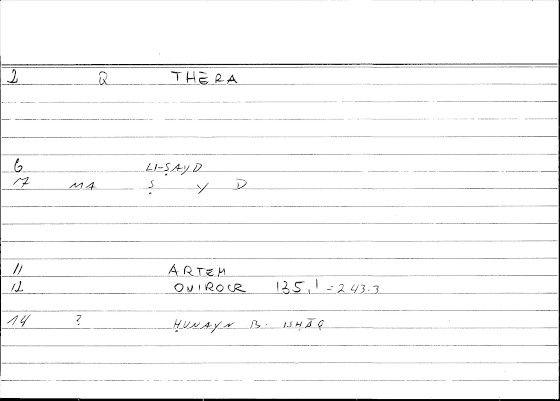 2 Q THERA
6 LI-ṢAYD
17 MA Ṣ Y D
11 ARTEM
12 ONIROCR 135,1 = 243.3
14 ? ḤUNAYN B. ISḤĀQ